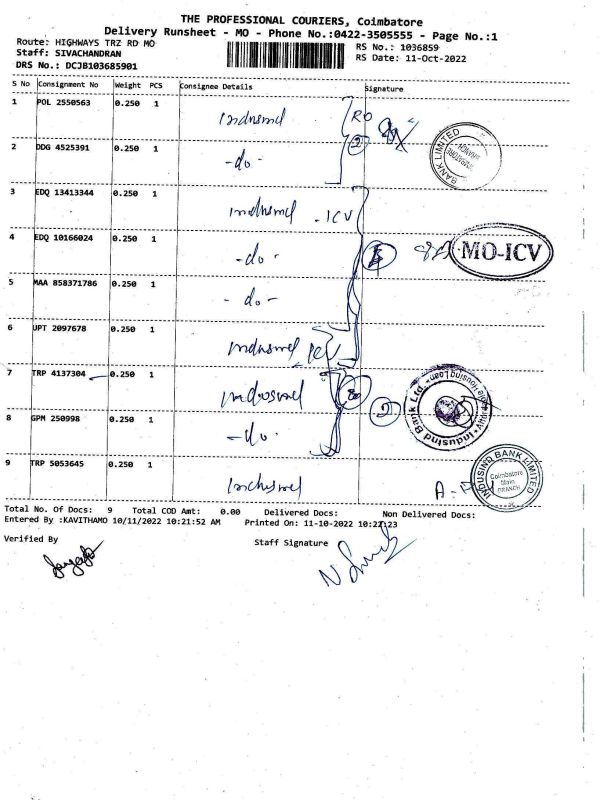 THE PROFESSIONAL COURIERS, Coimbatore
Delivery Runsheet - MO - Phone No.:0422-3505555 - Page No.:1
Route: HIGHWAYS TRZ RD MO
RS No.: 1036859
Staff: SIVACHANDRAN
RS Date: 11-Oct-2022
DRS No.: DCJB103685901
S No Consignment No Weight PCS Consignee Details Signature
1 POL 2550563 0.250 1
RO
2 DDG 4525391 0.250 1 -do-
BANK LIMITED
3 EDQ 13413344 0.250 1 ICV
4 EDQ 10166024 0.250 1 -do-
MO-ICV
5 MAA 858371786 0.250 1 -do-
6 UPT 2097678 0.250 1 ICV
7 TRP 4137304 0.250 1
Indusind Bank Ltd.
8 GPM 250998 0.250 1 -do-
9 TRP 5053645 0.250 1
INDUSIND BANK LIMITED
Coimbatore
Main
BRANCH
Total No. Of Docs: 9 Total COD Amt: 0.00 Delivered Docs: Non Delivered Docs:
Entered By :KAVITHAMO 10/11/2022 10:21:52 AM Printed On: 11-10-2022 10:22:23
Verified By
Staff Signature